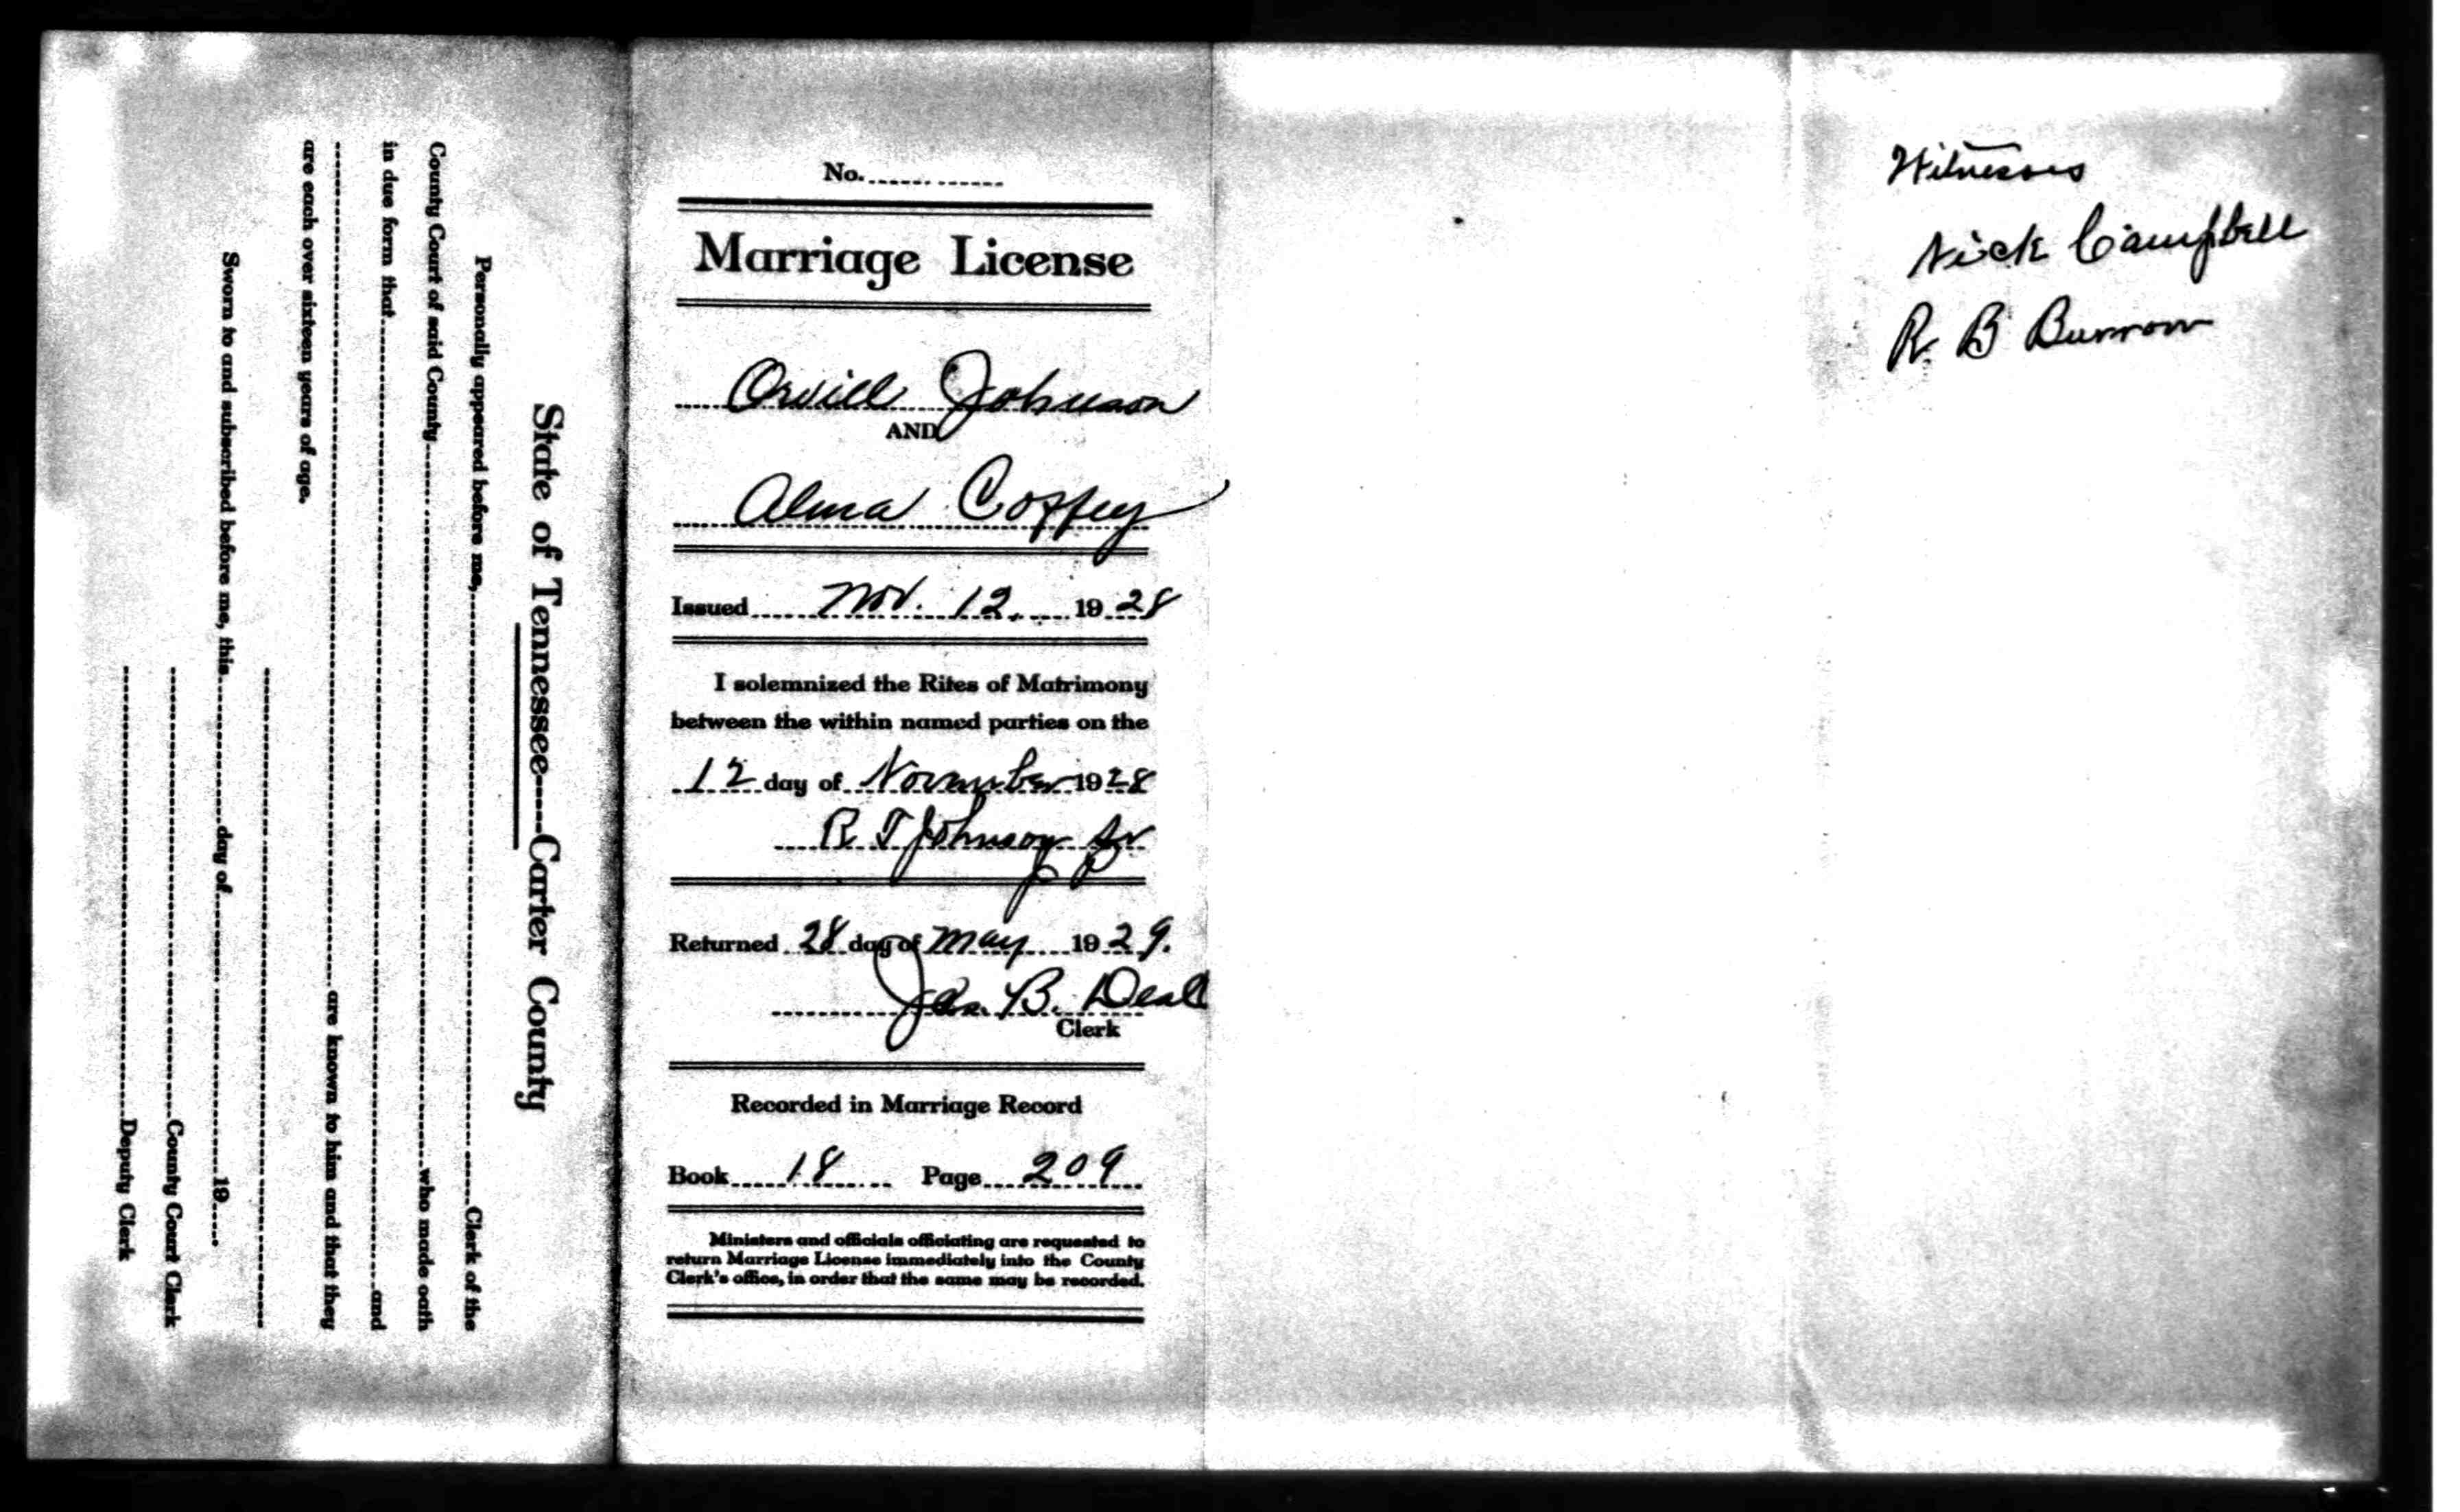 State of Tennessee----Carter County
Personally appeared before me, Clerk of the
County Court of said County who made oath
in due form that and
are known to him and that they
are each over sixteen years of age.
Sworn to and subscribed before me, this day of 19
County Court Clerk
Deputy Clerk
No.
Marriage License
Orvill Johnson
AND
Alma Coffey
Issued Nov. 12, 1928
I solemnized the Rites of Matrimony
between the within named parties on the
12 day of November 1928
R T Johnson
Returned 28 day of May 1929.
Jas. B. Deal
Clerk
Recorded in Marriage Record
Book 18 Page 209
Ministers and officials officiating are requested to
return Marriage License immediately into the County
Clerk's office, in order that the same may be recorded.
Witnesses
Nick Campbell
R. B Burrow